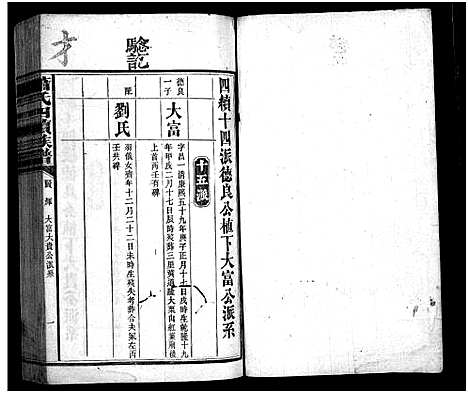 四續十四派德良公植下大富公派系
十五派
德良
一子
大富
字昌一清康熙五十九年庚子正月十七日辰時生乾隆十九
年甲戌二月十七日辰時歿葬三里黃道陂大栗山紅葉廟後
上首丙壬有碑
配
劉氏
羽儀女
年十二月二十二日未時生歿失考葬合夫冢左丙
壬共碑
驗記
才
氏四續族譜
大富大貴公派系